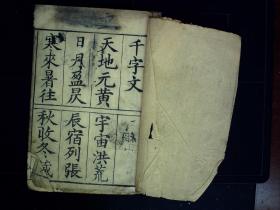 千字文
天地元黄
宇宙洪荒
日月盈昃
辰宿列張
寒來暑往
秋收冬